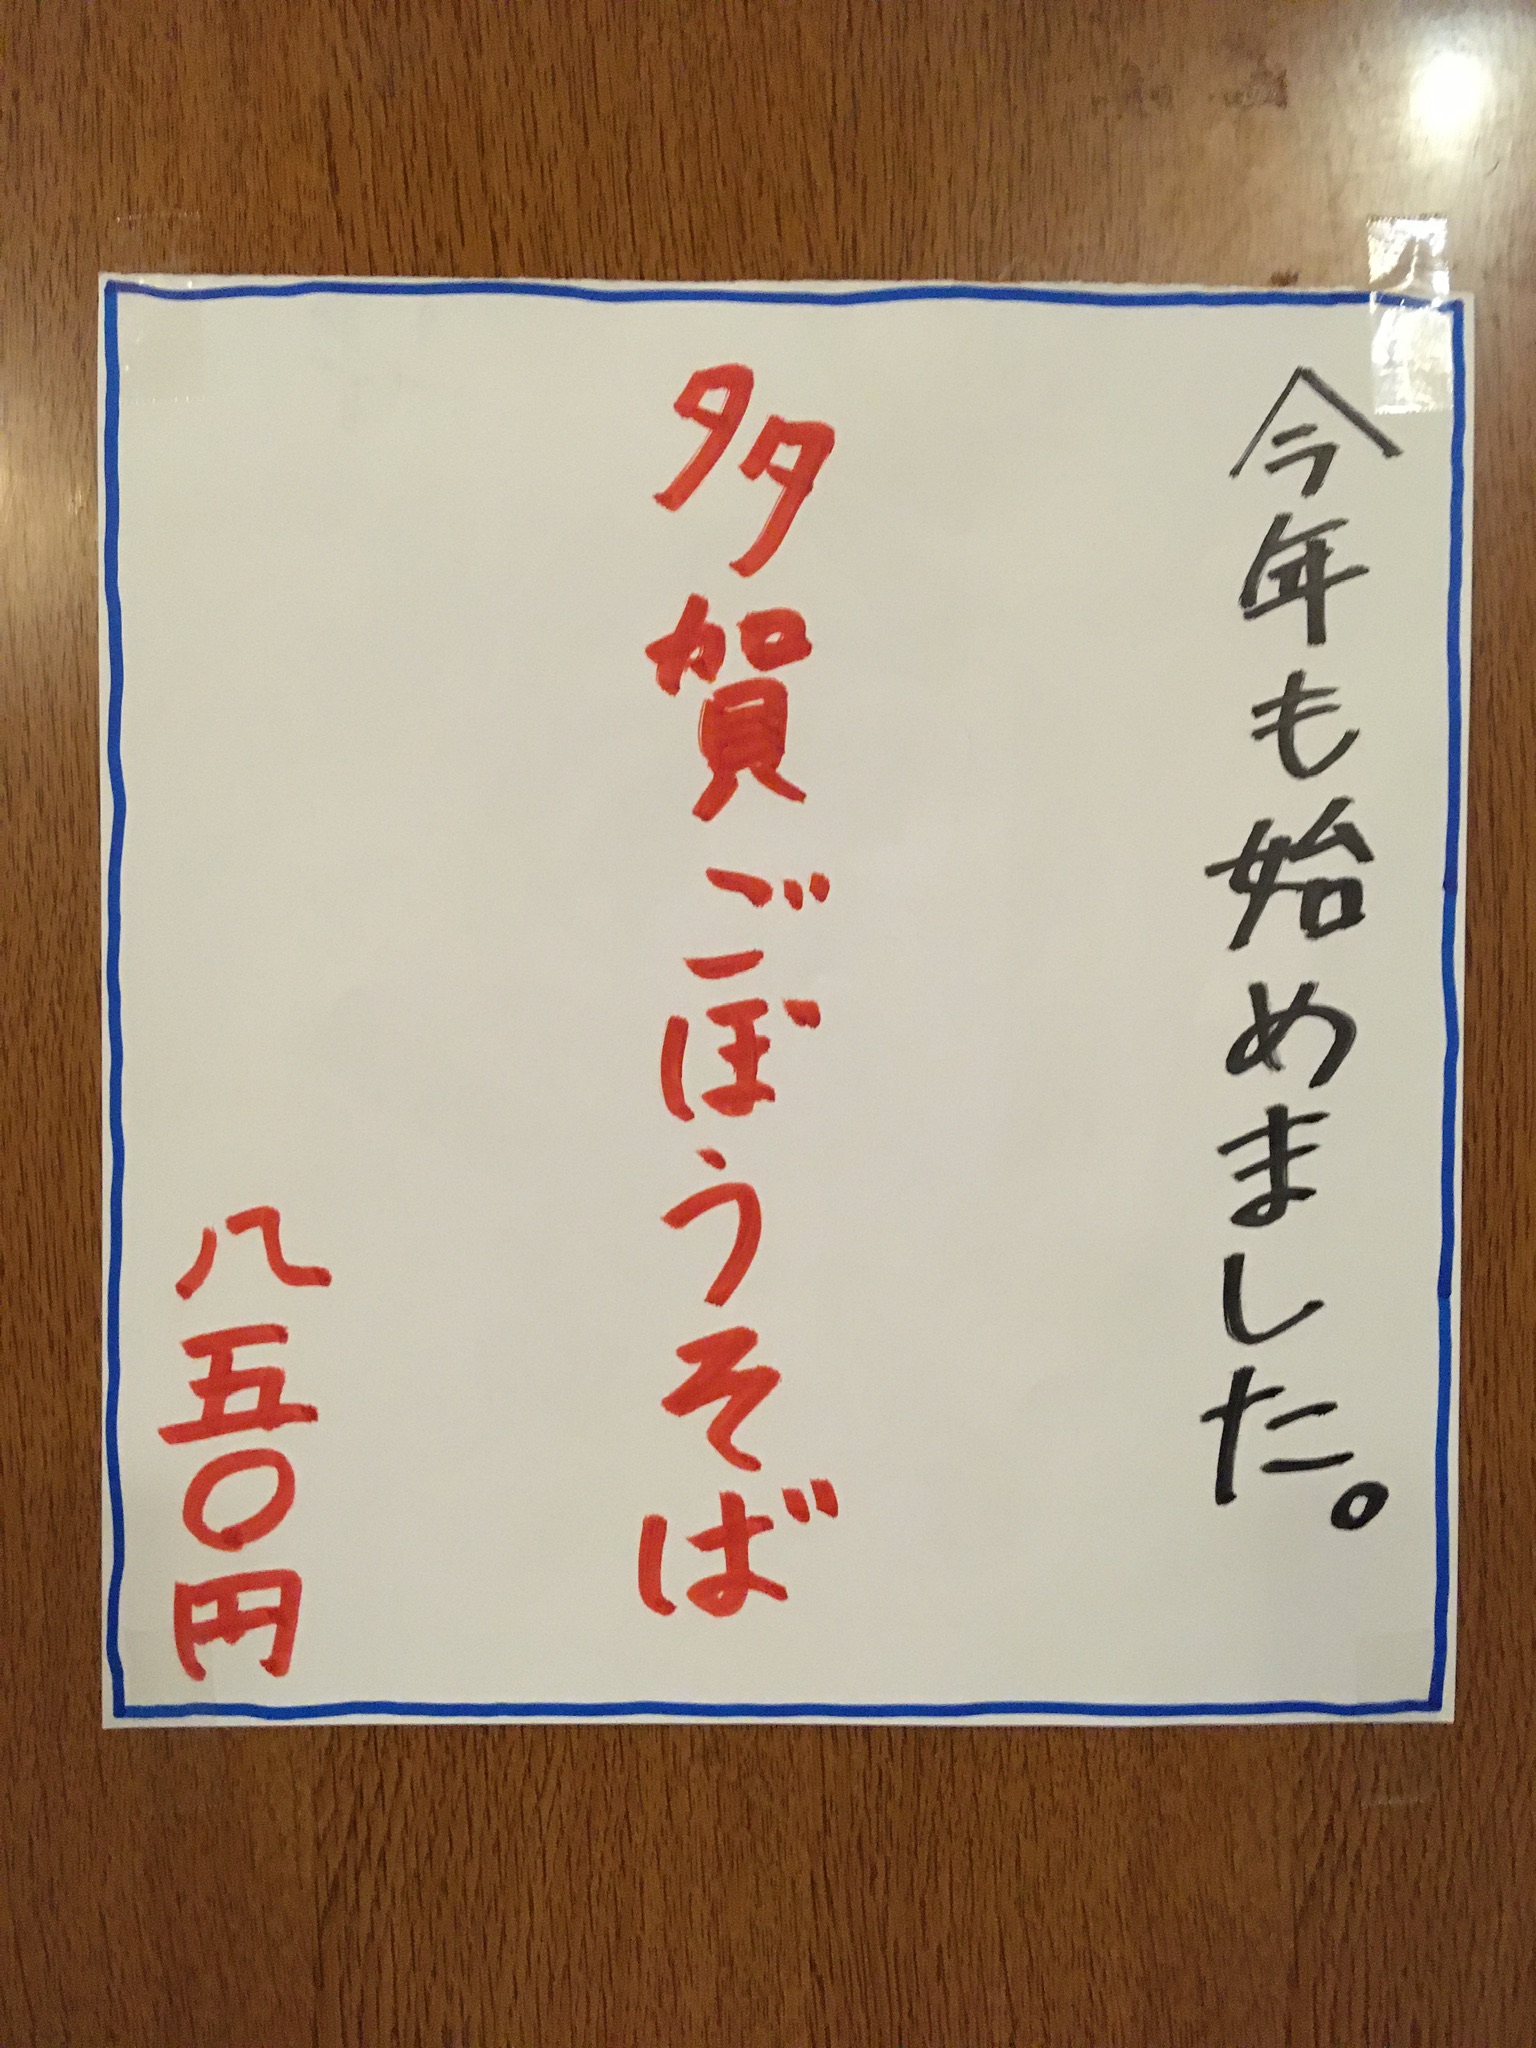 今年も始めました。
多賀ごぼうそば
八五〇円